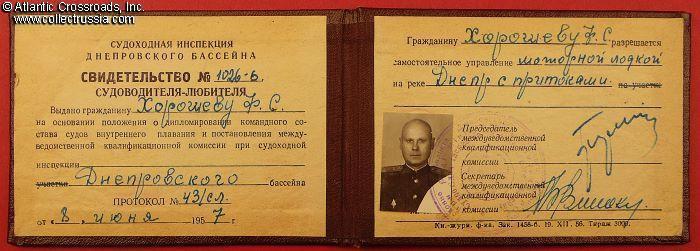 © Atlantic Crossroads, Inc.
www.collectrussia.com
СУДОХОДНАЯ ИНСПЕКЦИЯ
ДНЕПРОВСКОГО БАССЕЙНА
СВИДЕТЕЛЬСТВО № 1026-б.
СУДОВОДИТЕЛЯ-ЛЮБИТЕЛЯ
Выдано гражданину Хорошеву Ф. С.
на основании положения о дипломировании командного со-
става судов внутреннего плавания и постановления между-
ведомственной квалификационной комиссии при судоходной
инспекции
участка Днепровского бассейна
ПРОТОКОЛ № 43/сл.
от „8„ июня 1957 г.
Гражданину Хорошеву Ф. С. разрешается
самостоятельное управление моторной лодкой
на реке Днепр с притоками. на участке
Председатель
междуведомственной
квалификационной
комиссии
Секретарь
междуведомственной
квалификационной
комиссии
Кн.-журн. ф-ка. Зак. 1458-б. 19. XII. 56. Тираж 3000.